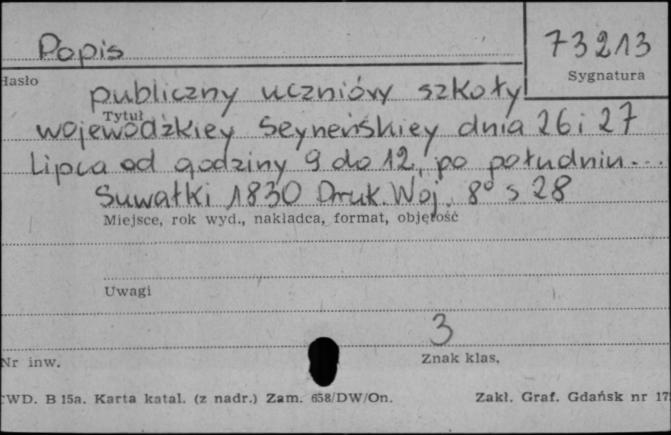 Popis
73213
Hasło
Sygnatura
publiczny uczniówy szkoły
Tytuł
wojewódzkiey Seyneńskiey dnia 26 i 27
Lipca od godziny 9 do 12, po południu...
Suwałki 1830 Druk. Woj. 8° s 28
Miejsce, rok wyd., nakładca, format, objętość
Uwagi
3
Nr inw.
Znak klas.
WD. B 15a. Karta katal. (z nadr.) Zam. 658/DW/On.
Zakł. Graf. Gdańsk nr 17